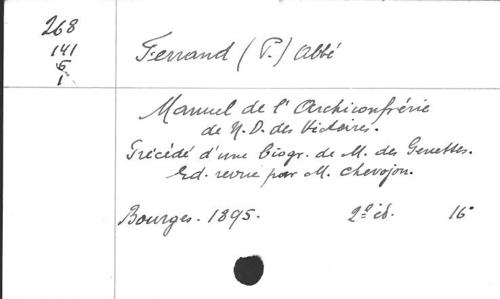 268
141
6
1
Ferrand (P.) Abbé
Manuel de l'Archiconfrérie
de N.D. des Victoires.
Précédé d'une biogr. de M. des Genettes.
Ed. revue par M. Chevojon.
Bourges. 1895. 2e éd. 16°